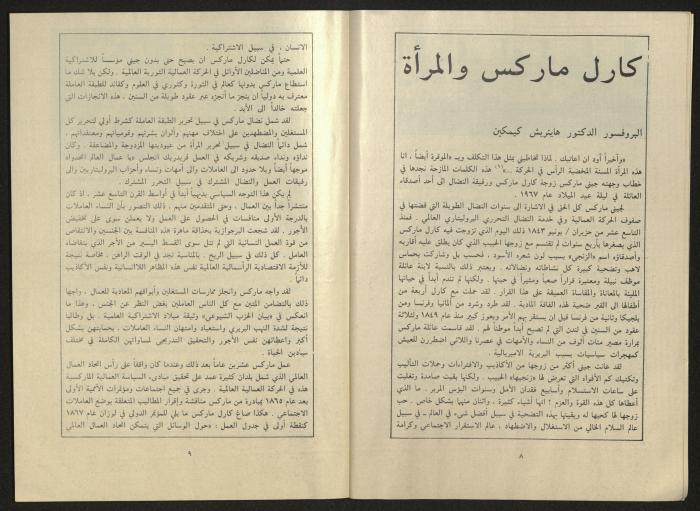 كارل ماركس والمرأة
البروفسور الدكتور هاينريش كيمكين
«وأخيراً أود ان اعاتبك . لماذا تخاطبني بمثل هذا التكلف وبـ «الموقرة أيضاً ، انا
هذه المرأة المسنة المخضبة الرأس في الحركة ...»(١) هذه الكلمات المازحة نجدها في
خطاب وجهته جيني ماركس زوجة كارل ماركس ورفيقة النضال الى أحد أصدقاء
العائلة في ليلة عيد الميلاد عام
لجيني ماركس كل الحق في الاشارة الى سنوات النضال الطويلة التي قضتها في
صفوف الحركة العمالية وفي خدمة النضال التحرري البروليتاري العالمي . فمنذ
التاسع عشر من حزيران / يونيو ١٨٤٣ ذلك اليوم الذي تزوجت فيه كارل ماركس
الذي يصغرها بأربع سنوات لم تقتسم مع زوجها الحبيب الذي كان يطلق عليه أقاربه
وأصدقاؤه اسم «الزنجي» بسبب لون شعره الأسود ، فحسب بل وشاركت بحماس
لاهب وتضحية كبيرة كل نشاطاته ونضالاته . ويعتبر ذلك بالنسبة لابنة عائلة
موقف نبيلة ومعتبرة قراراً صعباً ومثيراً في حينها . ولكنها لم تندم أبداً في حياتها
المليئة بالمعاناة والمقاساة العميقة على هذا القرار . لقد حملت مع كارل أربعة من
أطفالها الى القبر ضحية لهذه الفاقة المادية . لقد طرد وشرد من ألمانيا وفرنسا ومن
بلجيكا وثانية من فرنسا قبل ان يستقر بهم الأمر وبعوز كبير منذ عام ١٨٤٩ ولثلاثة
عقود من السنين في لندن التي لم تصبح أبداً موطناً لهم . لقد قاسمت عائلة ماركس
بمرارة مصير مئات ألوف من النساء والأمهات في عصرنا واللاتي اضطررن للعيش
كمهجرات سياسيات بسبب البربرية الامبريالية .
لقد عانت جيني أكثر من زوجها من الأكاذيب والافتراءات وحملات التأليب
وتكتيك كم الأفواه التي تعرض لها «زنجيها» الحبيب . ولكنها بقيت صامدة وتغلبت
على ساعات الاستسلام وأسابيع فقدان الأمل وسنوات البؤس المرير . ما الذي
أعطاها كل هذه القوة والعزم ؟ انها أشياء كثيرة ، واثنان منهما بشكل خاص . حب
زوجها لها كحبها له ويقينها بهذه التضحية في سبيل أفضل شيء في العالم ـ في سبيل
عالم السلام الخالي من الاستغلال والاضطهاد ، عالم الاستقرار الاجتماعي وكرامة
٨
الانسان ، في سبيل الاشتراكية .
حتماً يمكن لكارل ماركس ان يصبح حتى بدون جيني مؤسساً للاشتراكية
العلمية ومن المناضلين الأوائل في الحركة العمالية الثورية العالمية . ولكن بلا شك ما
استطاع ماركس بدونها كعالم في الثورة وكثوري في العلوم وكقائد للطبقة العاملة
معترف به دولياً ان ينجز ما أنجزه عبر عقود طويلة من السنين . هذه الانجازات التي
جعلته خالداً الى الأبد .
لقد شمل نضال ماركس في سبيل تحرير الطبقة العاملة كشرط أولي لتحرير كل
المستغلين والمضطهدين على اختلاف مهنهم وألوان بشرتهم وقومياتهم ومعتقداتهم ،
شمل دائماً النضال في سبيل تحرير المرأة من عبوديتها المزدوجة والمضاعفة . وكان
نداؤه ونداء صديقه وشريكه في العمل فريدريك انجلس «يا عمال العالم اتحدوا»
موجهاً أيضاً وبلا حدود الى العاملات والى أمهات ونساء وأحزاب البروليتاريين والى
رفيقات العمل والنضال المشترك في سبيل التحرر المشترك .
لم يكن هذا التوجه السياسي بديهياً أبداً في أواسط القرن التاسع عشر . اذ كان
منتشراً جداً بين العمال ، وحتى المتقدمين منهم ، ذلك التصور بأن النساء العاملات
بالدرجة الأولى منافسات في الحصول على العمل ولا يعملن سوى على تخفيض
الأجور . لقد شجعت البرجوازية بحذاقة ماهرة هذه المنافسة بين الجنسين والانتقاص
من قوة العمل النسائية التي لم تنل سوى القسط اليسير من الأجر الذي يتقاضاه
العامل . كل ذلك في سبيل الربح . بالمناسبة نجد في الوقت الراهن . خاصة نتيجة
للأزمة الاقتصادية الرأسمالية العالمية نفس هذه المظاهر اللاانسانية ونفس الأكاذيب
دائماً
لقد واجه ماركس وانجلز ممارسات المستغلين وأبواقهم المعادية للعمال ، واجها
ذلك بالتضامن المتين مع كل الناس العاملين بغض النظر عن الجنس ، وهذا ما
انعكس في «بيان الحزب الشيوعي» وثيقة ميلاد الاشتراكية العلمية . بل وطالبا
نتيجة لشدة النهب البربري واستعباد وامتهان النساء العاملات ، بحمايتهن بشكل
أكبر واعطائهن نفس الأجور والتحقيق التدريجي لمساواتهن الكاملة في مختلف
ميادين الحياة .
عمل ماركس عشرين عاماً بعد ذلك وعندما كان واقفاً على رأس اتحاد العمال
العالمي الذي شمل بلدان كثيرة عمد على تحقيق مبادىء السياسة العمالية الماركسية
هذه في الحركة العمالية العالمية . وجرى في جميع اجتماعات ومؤتمرات الأممية الأولى
بعد عام ١٨٦٥ بمبادرة من ماركس مناقشة وإقرار المطاليب المتعلقة بوضع العاملات
الاجتماعي . هكذا صاغ كارل ماركس ما يلي للمؤتمر الدولي في لوزان عام ١٨٦٧
كنقطة أولى في جدول العمل : «حول الوسائل التي يتمكن اتحاد العمال العالمي
٩